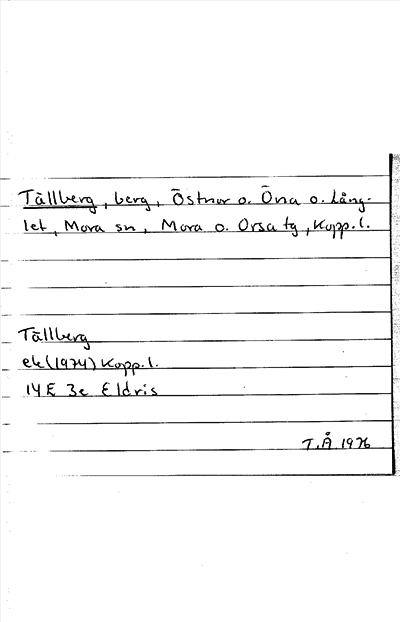 Tällberg, berg, Östnor o. Öna o. Lång-
let, Mora sn, Mora o. Orsa tg, Kopp.l.
Tällberg
ek (1974) Kopp.l.
14E 3c Eldris
T.Å 1976